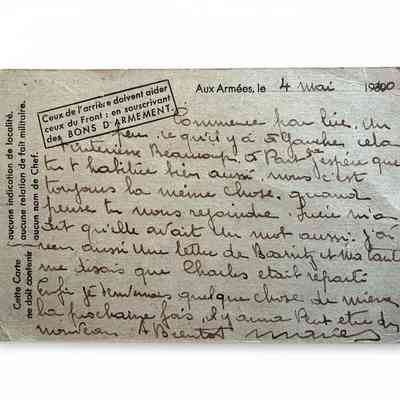 Ceux de l'arrière doivent aider
ceux du Front : en souscrivant
des BONS D'ARMEMENT.
Aux Armées, le 4 mai 1940
aucune indication de localité.
aucune relation de fait militaire.
aucun nom de Chef.
Cette Carte
ne doit contenir
Commence par lire. Un
peu ce qu'il y a à gauche, cela
Beaucoup, espère que
tu t habitue bien aussi. nous c'est
toujours la même chose. quand
pense tu nous rejoindre. Lucie m'a
dit qu'elle avait un mot aussi. j'ai
reçu aussi Une lettre de et Ma tante
me disais que Charles etait réparti
Enfin je quelque chose de mieux
la prochaine fois, il y aura Peut etre du
nouveau A Bientot